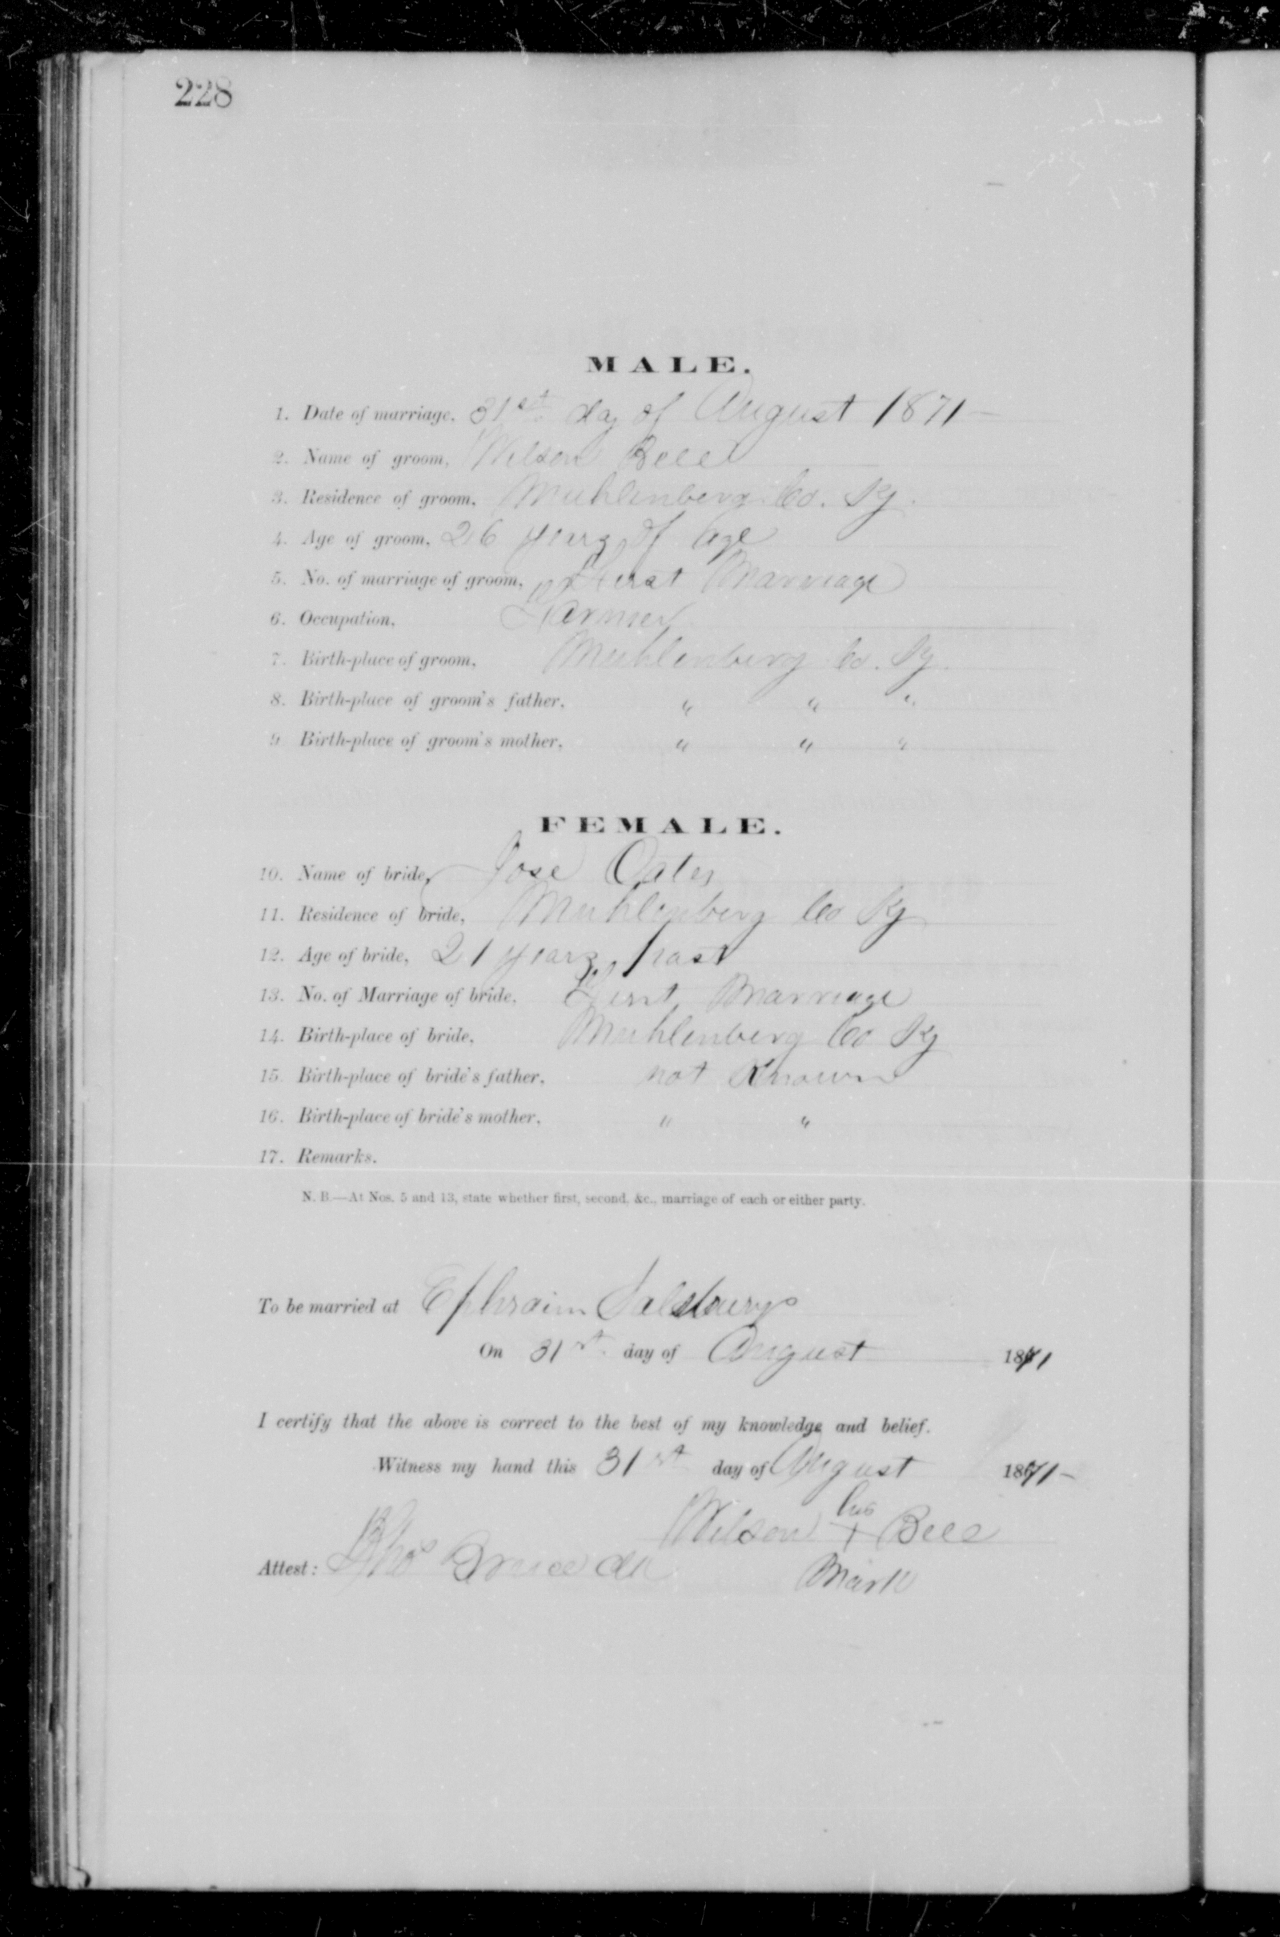 228
MALE.
1. Date of marriage, 31st day of August 1871
2. Name of groom, Wilson Bell
3. Residence of groom, Muhlenberg Co. Ky.
4. Age of groom, 26 years of age
5. No. of marriage of groom, First Marriage
6. Occupation, Farmer
7. Birth-place of groom, Muhlenberg Co. Ky.
8. Birth-place of groom's father, " " "
9. Birth-place of groom's mother, " " "
FEMALE.
10. Name of bride, Jose Oates
11. Residence of bride, Muhlenberg Co Ky
12. Age of bride, 21 years past
13. No. of Marriage of bride, First Marriage
14. Birth-place of bride, Muhlenberg Co Ky
15. Birth-place of bride's father, not Known
16. Birth-place of bride's mother, " "
17. Remarks.
N. B.—At Nos. 5 and 13, state whether first, second, &c., marriage of each or either party.
To be married at Ephraim Salsburys
On 31st day of August 1871
I certify that the above is correct to the best of my knowledge and belief.
Witness my hand this 31st day of August 1871
Wilson his + Bell
Attest: Thos Bruce Clk mark